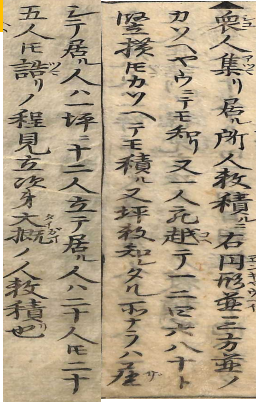 ▲衆人集リ居ル所人数積ルニ右円形並三方並ノ
カソヘヤウニテモ知リ又一人宛越テ一二四六八十ト
竪横モカソヘテモ積ル又坪数知レタル所ナラハ座
シテ居ル人ハ一坪ニ十二人立テ居ル人ハ二十人モ二十
五人モ詰リノ程見立次第大概ノ人数積也